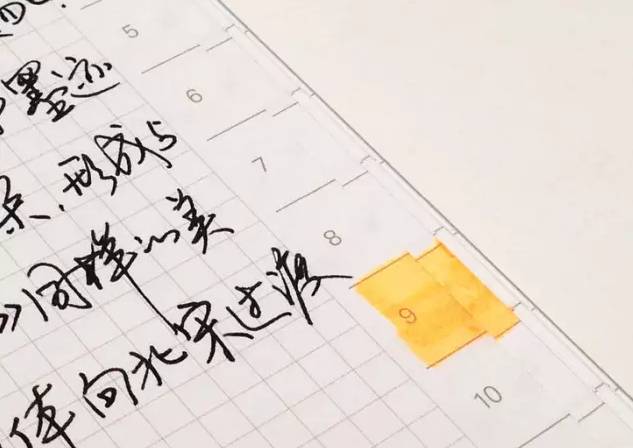 5
墨迹
6
形成与
7
》同样的美
8
体向北宋过渡
9
10